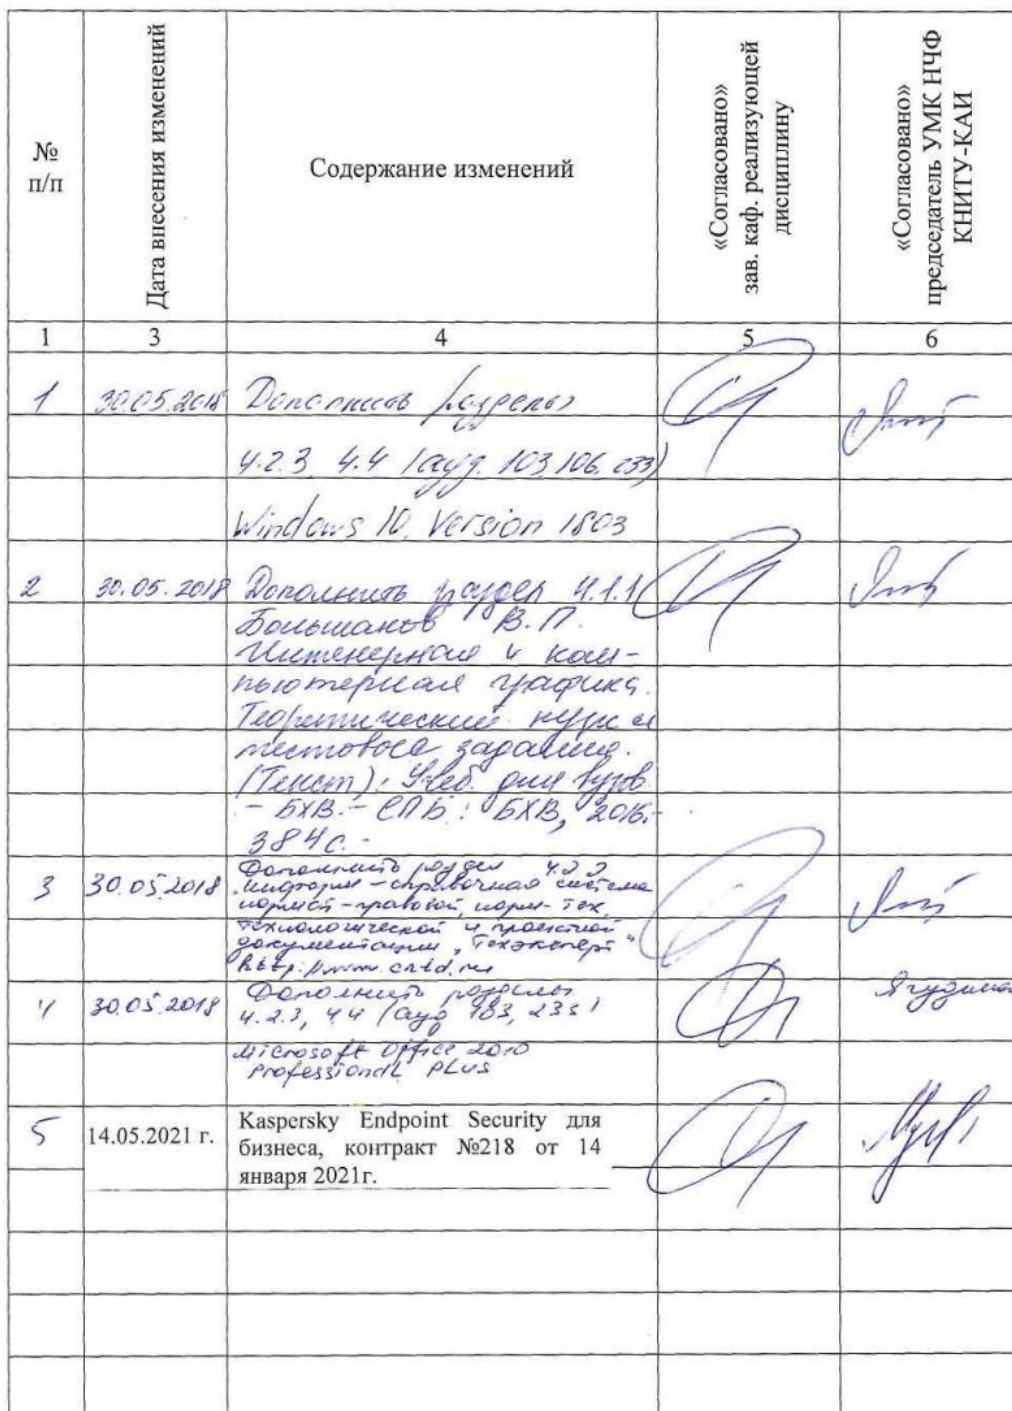 №
п/п
Дата внесения изменений
Содержание изменений
«Согласовано»
зав. каф. реализующей
дисциплину
«Согласовано»
председатель УМК НЧФ
КНИТУ-КАИ
1 3 4 5 6
1 30.05.2018 Дополнить разделы
4.2.3, 4.4 (ауд. 103, 106, 233)
Windows 10, Version 1803
2 30.05.2018 Дополнить раздел 4.1.1
Большаков В.П.
Инженерная и ком-
пьютерная графика.
Теоретический курс и
тестовые задания.
(Текст): Учеб. для вузов
- БХВ. - СПб: БХВ, 2016.-
384с.-
3 30.05.2018 Дополнить раздел
информ-справочная система
технологической и проектной
документации „Техэксперт“
http://www.cntd.ru
4 30.05.2018 Дополнить разделы
4.2.3, 4.4 (ауд 103,
Microsoft Office 2010
Professional Plus
5 14.05.2021 г. Kaspersky Endpoint Security для
бизнеса, контракт №218 от 14
января 2021г.